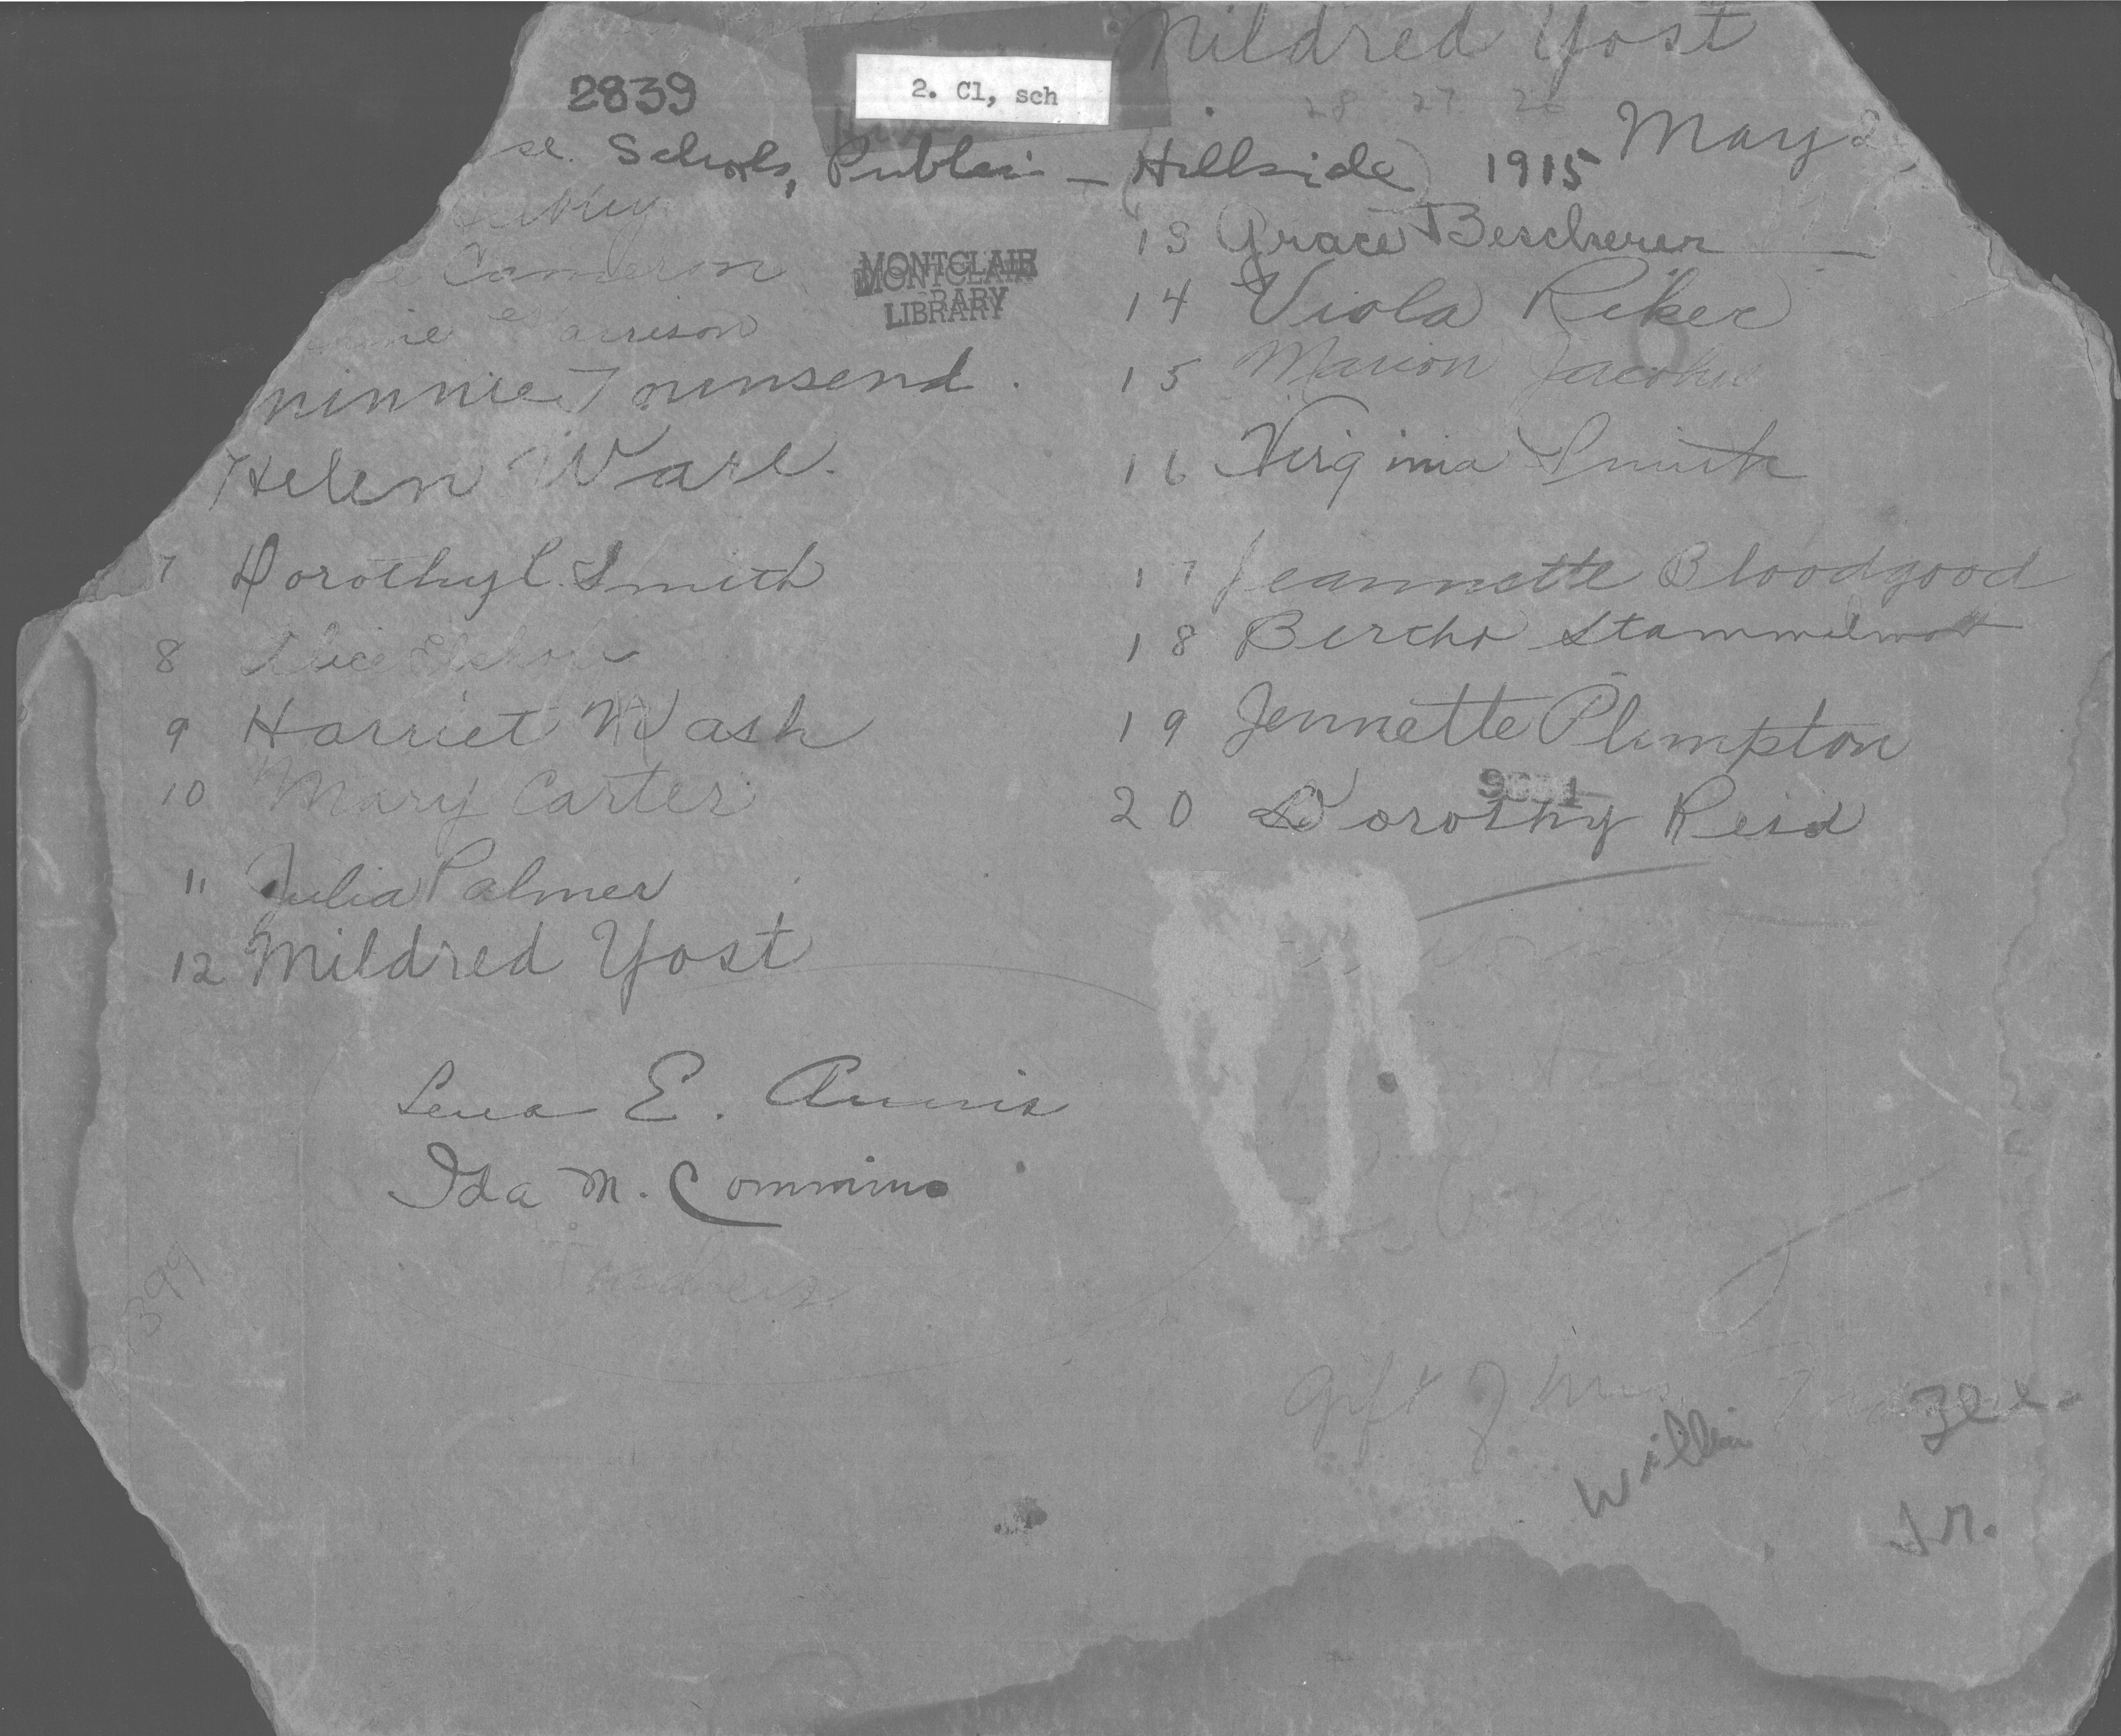 Mildred Yost
2839
2. Cl, sch
28 27 26
May 2
Schools, Public - (Hillside) 1915
Cameron
MONTCLAIR
LIBRARY
Harrison
ninnie Townsend.
Helen Ware.
7 Dorothy C. Smith
8 Alice
9 Harriet Wash
10 Mary Carter
11 Julia Palmer
12 Mildred Yost
13 Grace Bescherer
14 Viola Riker
15 Marion Jacobus
16 Virginia Smith
17 Jeannette Bloodgood
18 Bertha
19 Jennette Plimpton
20 Dorothy Reid
Lena E. Annis
Ida M. Commins
Teachers
399
Gift of Mrs.
Jr.